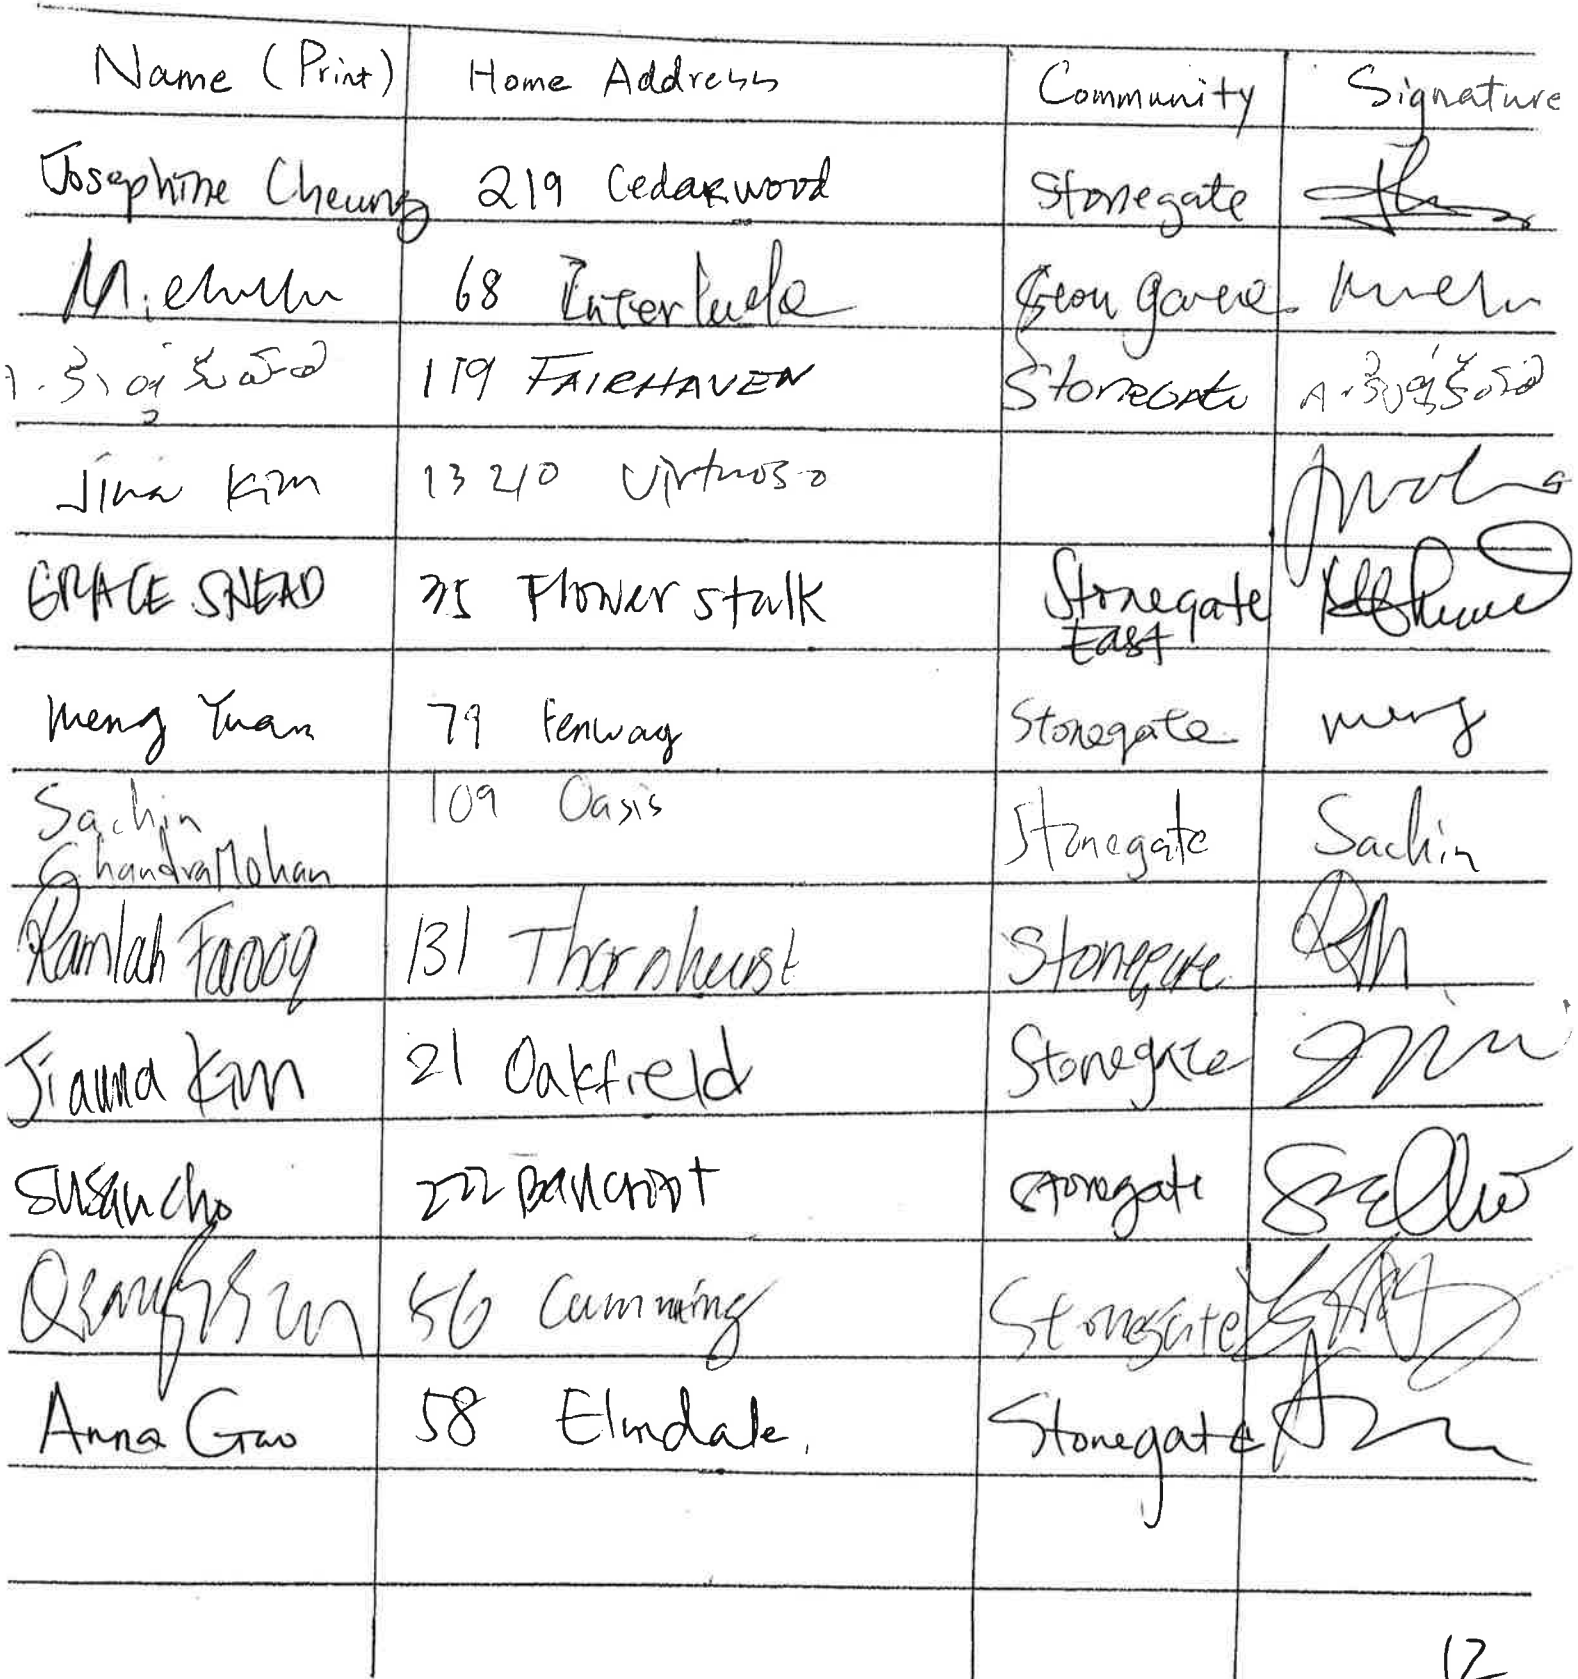 Name (Print) Home Address Community Signature
Josephine Cheung 219 Cedarwood Stonegate
68 Interlude
119 FAIRHAVEN Stonegate
Jina Kim 13 210 Virtuoso
GRACE SNEAD 35 Flowerstalk Stonegate
East
Meng Yuan 79 Fenway Stonegate meng
Sachin 109 Oasis Stonegate Sachin
ChandraMohan
Ramlah Farooq 131 Thornhurst Stonegate
Kim 21 Oakfield Stonegate
Susan Cho 222 Bancroft Stonegate
56 Cumming Stonegate
Anna Gao 58 Elmdale. Stonegate
12